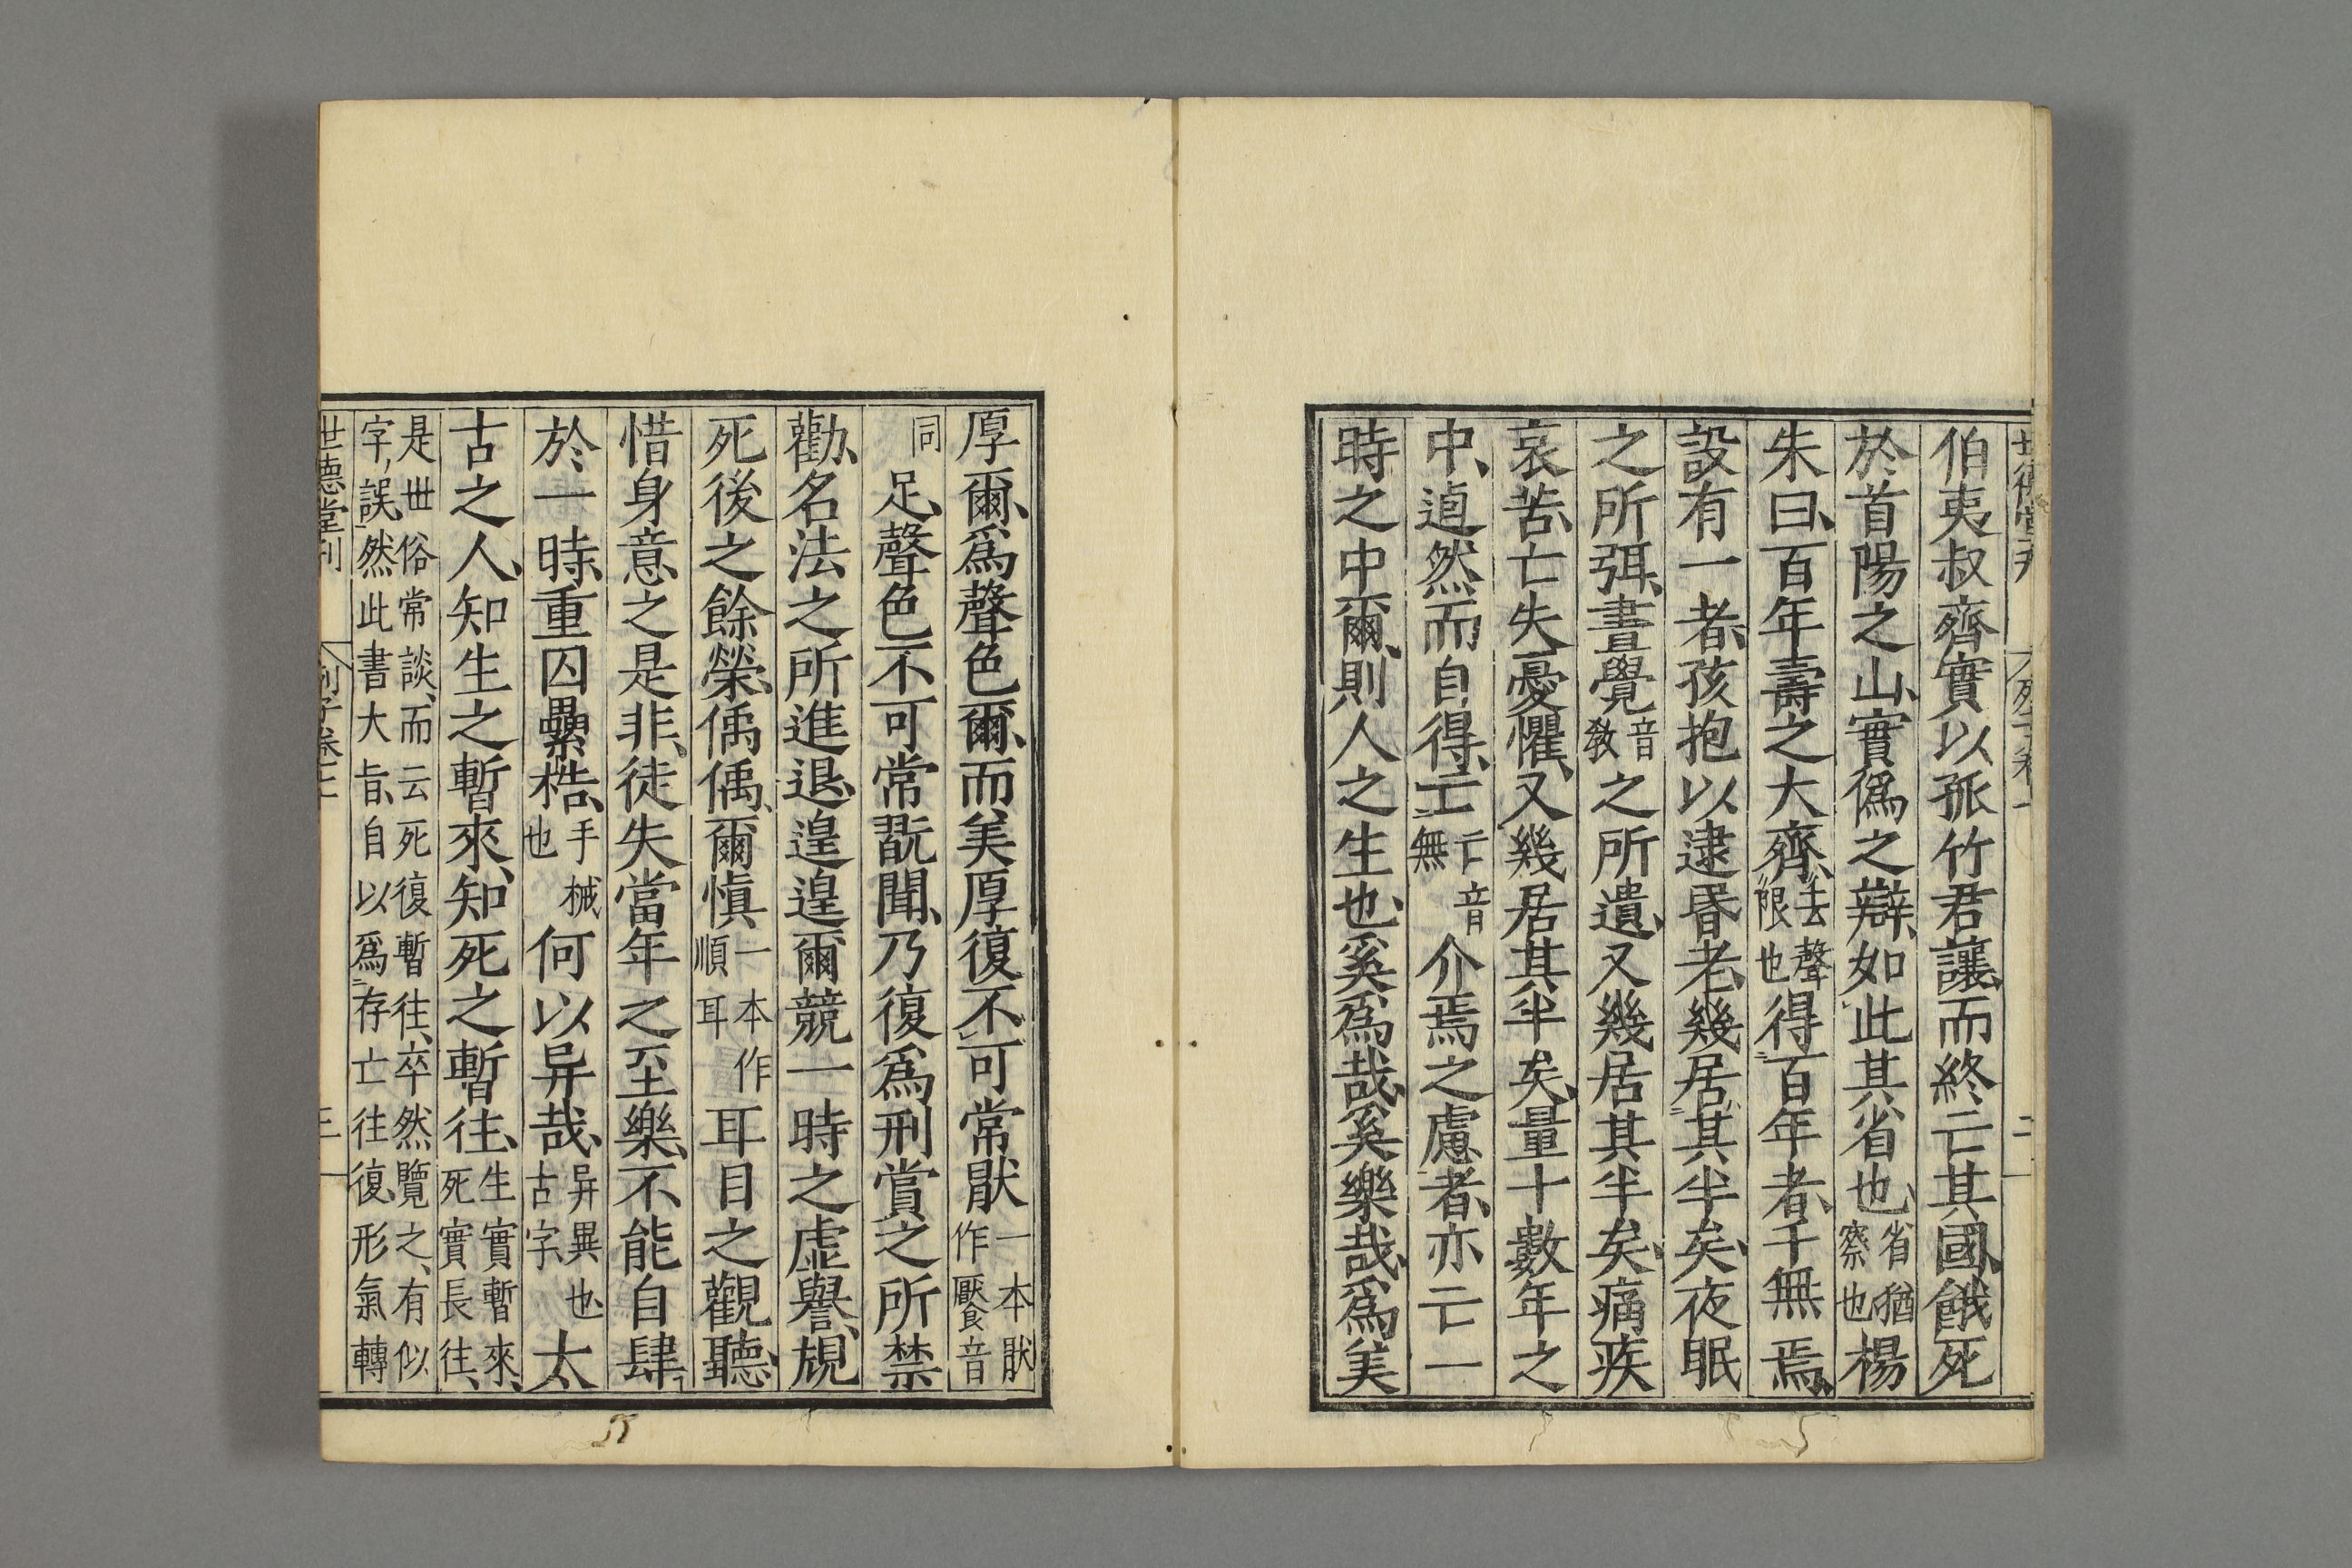 伯夷叔齊實以孤竹君讓而終亡其國餓死
於首陽之山實僞之辯如此其省也省猶察也楊
朱曰百年壽之大齊去聲限也得百年者千無一焉
設有一者孩抱以逮昬老幾居其半矣夜眠
之所弭晝覺音敎之所遺又幾居其半矣痛疾
哀苦亡失憂懼又幾居其半矣量十數年之
中逌然而自得亡亡音無介焉之慮者亦亡一
時之中爾則人之生也奚爲哉奚樂哉爲美
厚爾爲聲色爾而美厚復不可常猒一本猒作饜音
同足聲色不可常翫聞乃復爲刑賞之所禁
勸名法之所進退遑遑爾競一時之虛譽規
死後之餘榮偊偊爾愼一本作順耳耳目之觀聽
惜身意之是非徒失當年之至樂不能自肆
於一時重囚纍梏手械也何以异哉异異也古字太
古之人知生之暫來知死之暫往生實暫來死實長往
是世俗常談而云死復暫往卒然覽之有似
字誤然此書大旨自以爲存亡往復形氣轉
世德堂刊